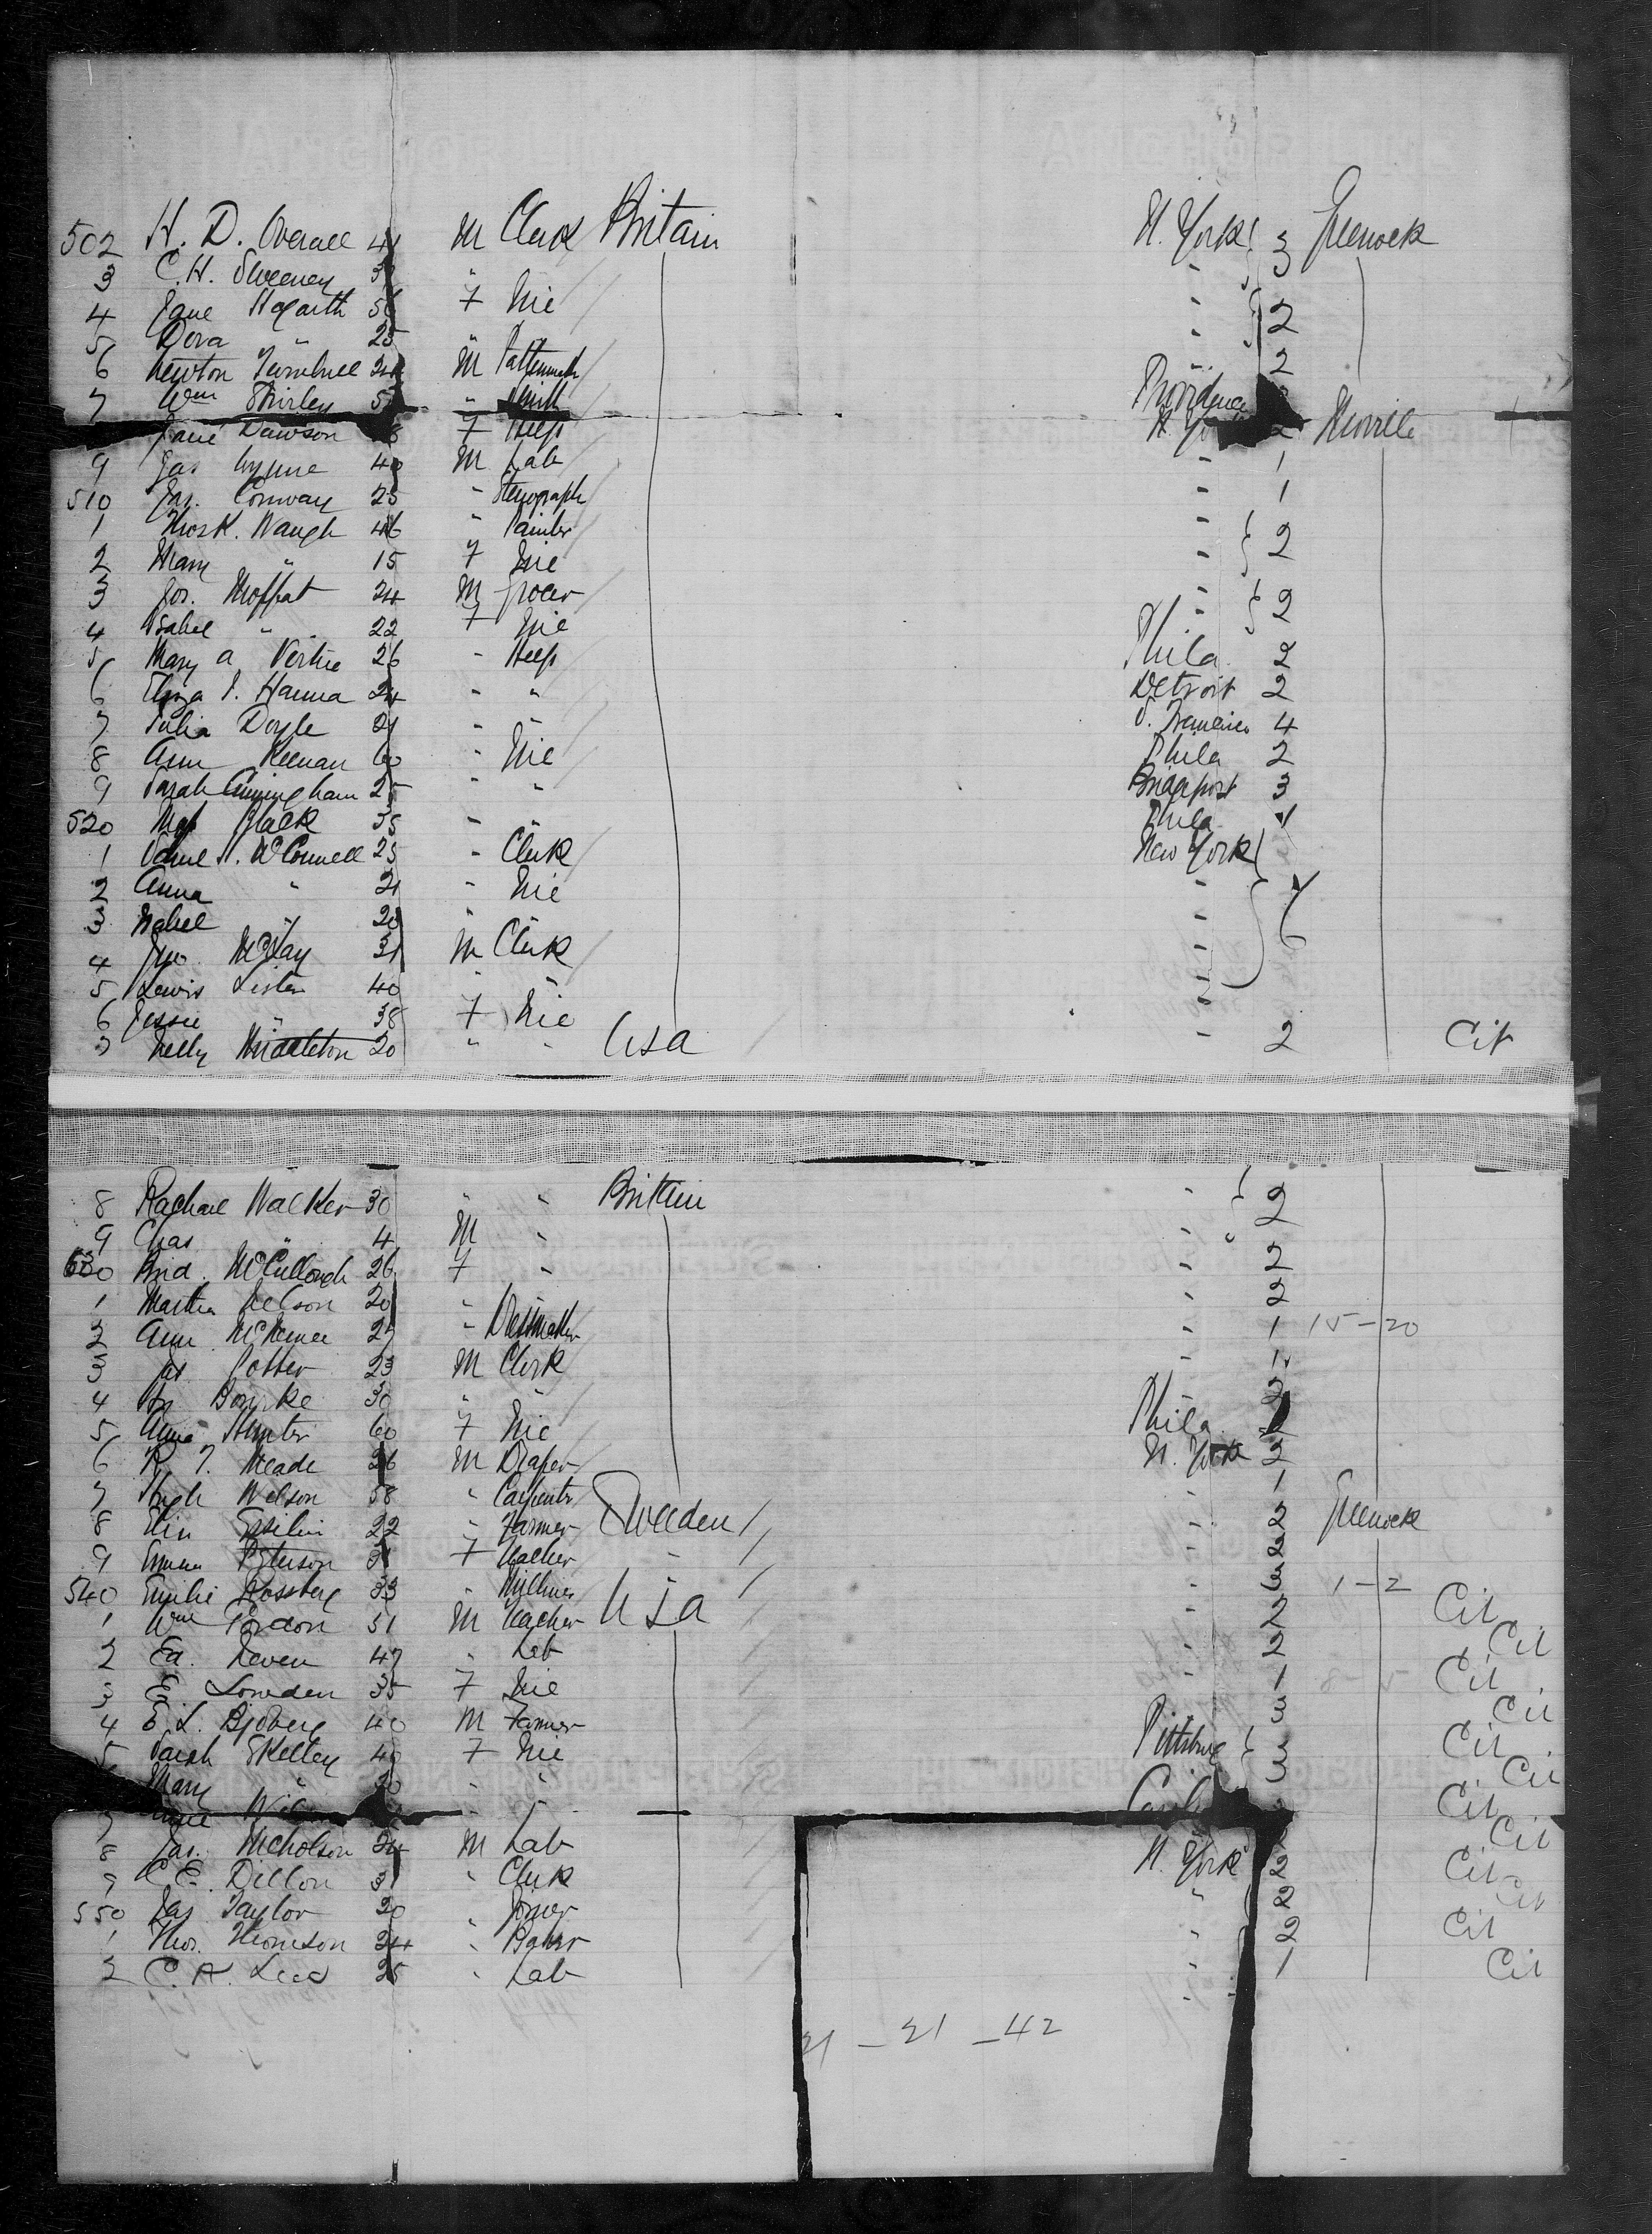 502 H. D. Overall 41 M Clerk Britain N. York 3 Greenock
3 C. H. Sweeney 3 " "
4 Jane Hogarth 56 F Nie " 2
5 Dora " 25 " " "
6 Newton Turnbull 24 M Patternmak " 2
7 Wm Shirley 5 " Smith Providence
Jane Dawson 8 F Help N. Yo 2 Moville
9 Jas Lynne 40 M Lab " 1
510 Jas. Conway 25 " Stenograph " 1
1 Thos K. Waugh 46 " Painter " 2
2 Mary " 15 F Nie "
3 Jos. Moffat 24 M Grocer " 2
4 Isabel " 22 F Nie "
5 Mary A Vertue 26 " Help Phila 2
6 Eliza J. Hanna 24 " " Detroit 2
7 Julia Doyle 21 " " S. Francisco 4
8 Ann Keenan 60 " Nie Phila 2
9 Sarah Cunningham 25 " " Bridgeport 3
520 Black 35 " " Phila 1
1 McConnell 25 " Clerk New York
2 Anna " 21 " Nie "
3 Isabel " 20 " " "
4 Jno McKay 31 M Clerk "
5 Lewis Lister 40 " " "
6 Jessie " 38 F Nie "
7 Nelly Middleton 20 " " USA " 2 Cit
8 Rachael Walker 30 " " Britain " 2
9 Chas " 4 M " "
530 Brid. McCullough 26 F " " 2
1 Martha Nelson 20 " " " 2
2 Ann 27 " Dressmaker " 1 15-20
3 Jas Potter 23 M Clerk " 1
4 Bourke 30 " " " 2
5 Anna Hunter 60 F Nie Phila
6 R. J. Meade 26 M Draper N. York 2
7 Hugh Wilson 58 " Carpenter " 1
8 Elin 22 " Farmer Sweden " 2 Greenock
9 Emma Peterson 31 F Teacher " " 2
540 Emilie Kossberg 33 " Milliner " 1-2
1 Wm Gordon 51 M Teacher USA " 2 Cit
2 Ed. Deven 47 " Lab " 2 Cit
3 E. Lowden 35 F Nie " 1 Cit
4 E. L. Bjoberg 40 M Farmer 3 Cit
5 Sarah Skelley 40 F Nie Pittsburg 3 Cit
Mary " 30 " " Cit
7 " " Cit
8 Jas. Nicholson 24 M Lab N. York 2 Cit
9 C. E. Dillon 31 " Clerk " 2 Cit
550 Jas Taylor 20 " Joiner " Cit
1 Thos. Thomson 24 " Baker " 2 Cit
2 C. A. 25 " Lab " 1 Cit
21 - 21 - 42